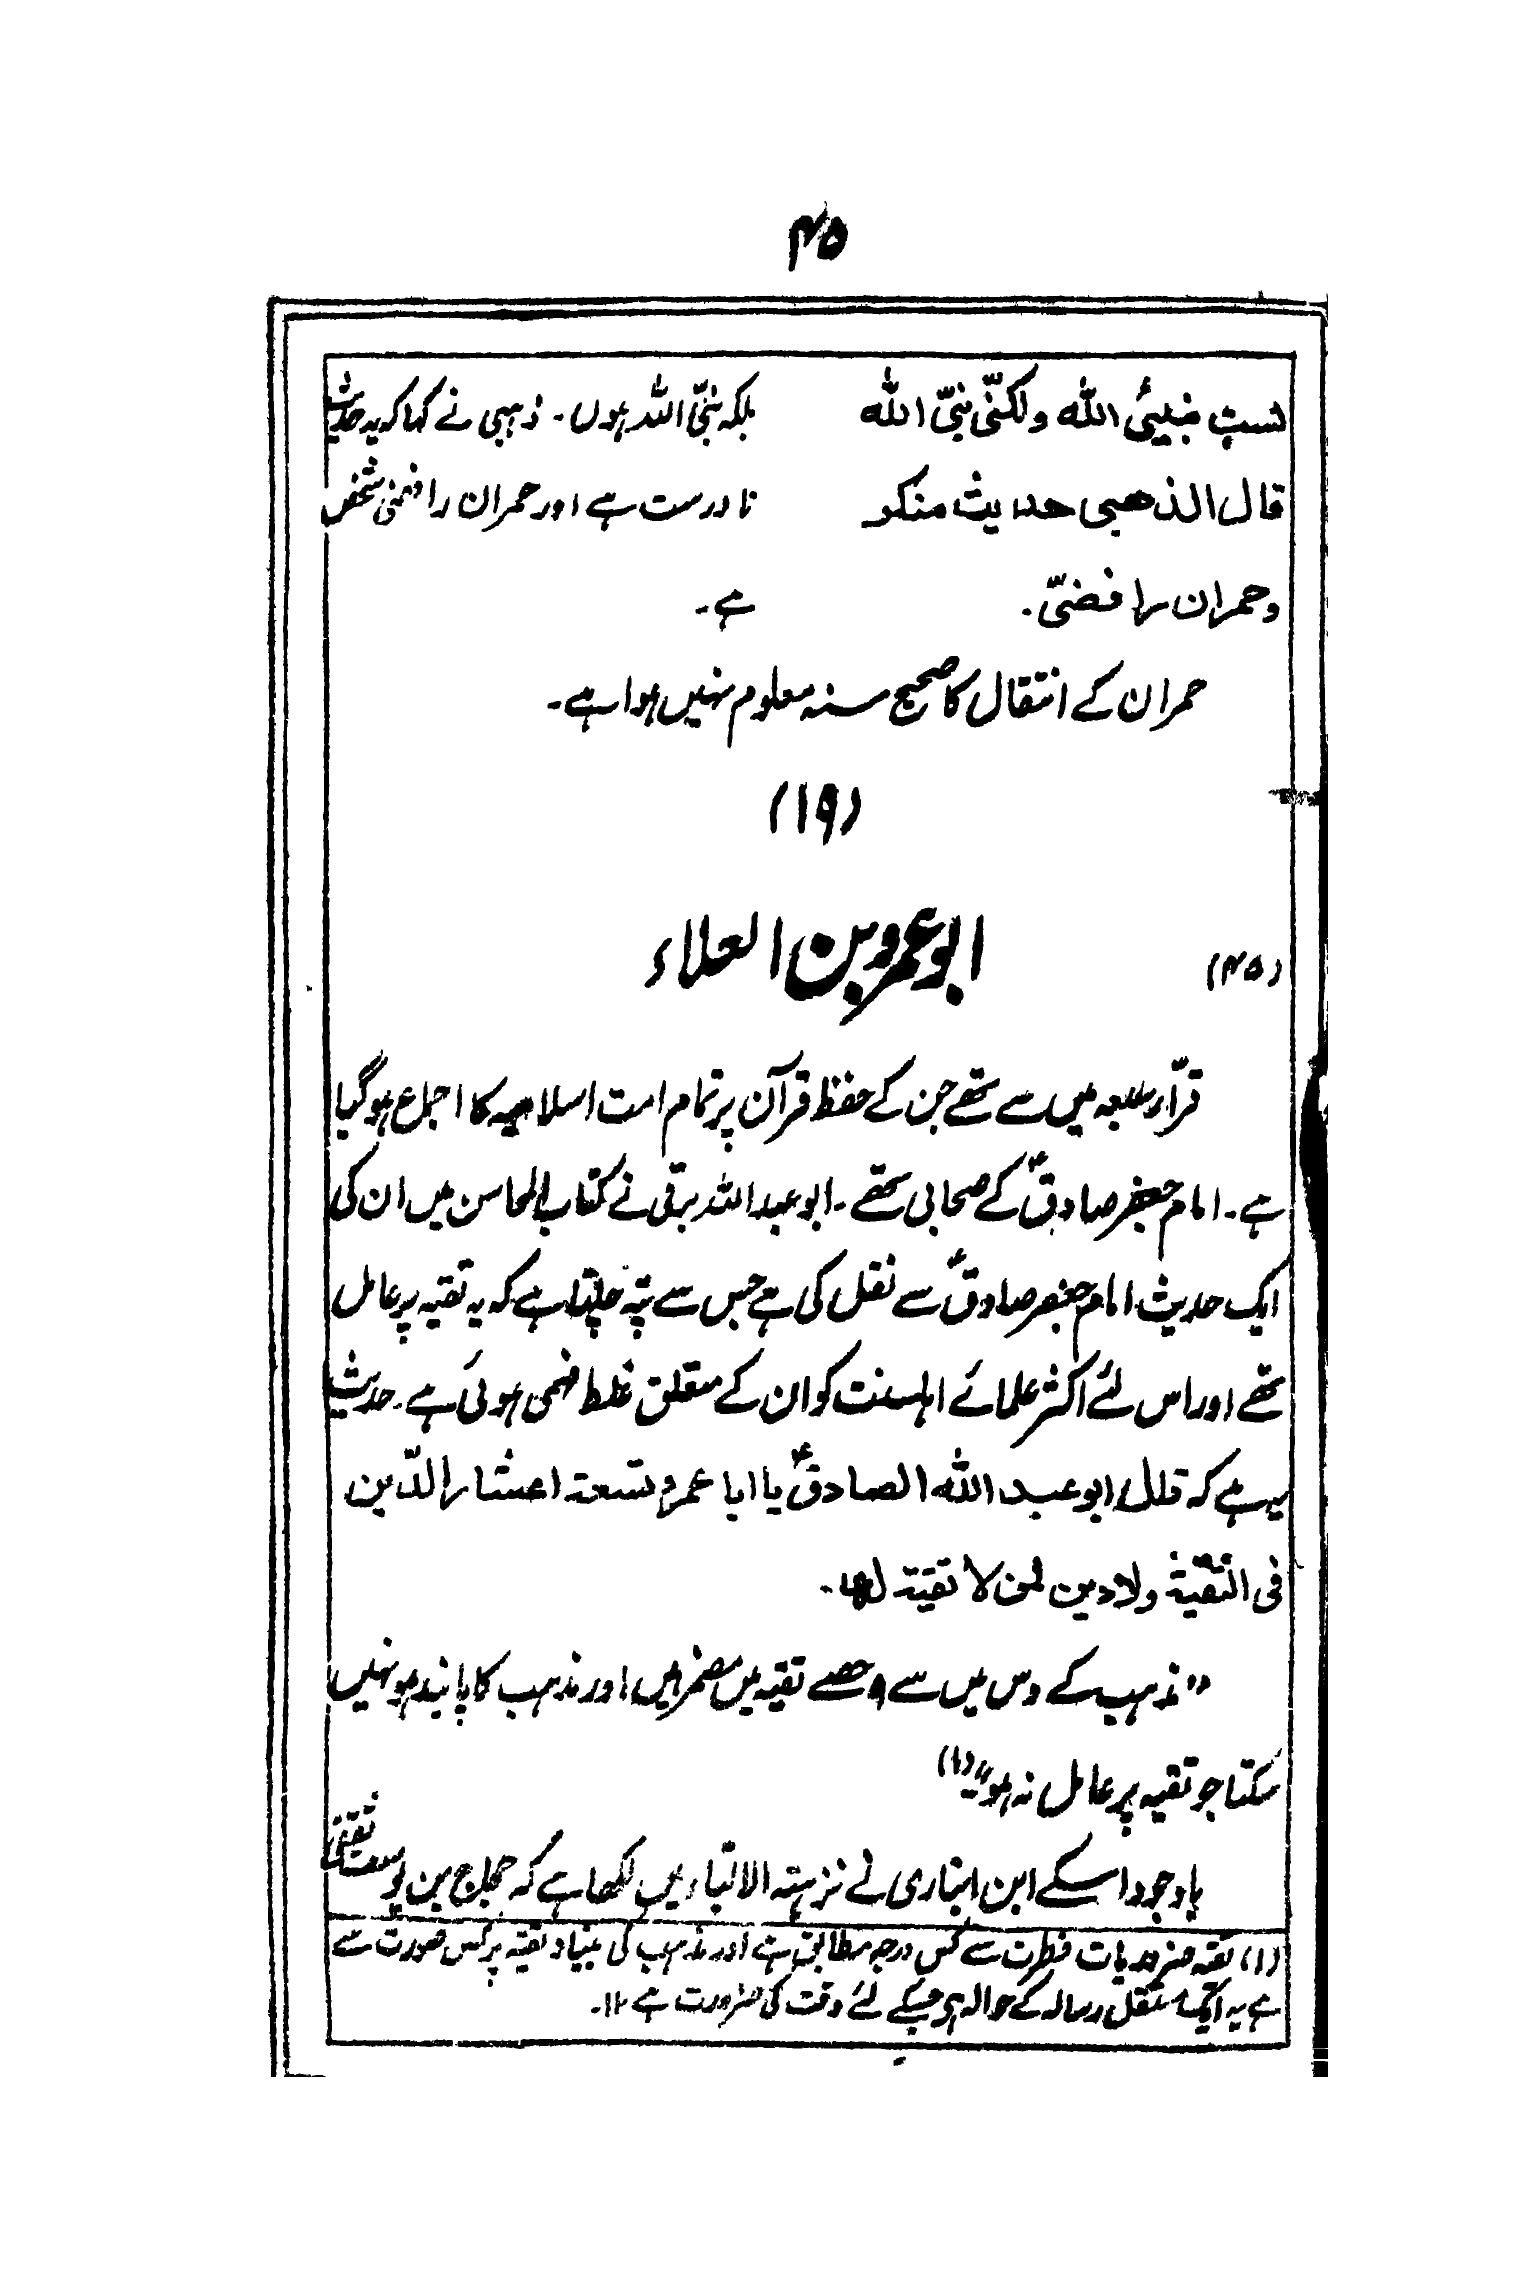 ۴۵
لست بنبیئ اللہ ولکنّی نبیّ اللہ بلکہ نبیّ اللہ ہوں۔ ذہبی نے کہا کہ یہ حدیث
قال الذھبی حدیث منکر نا درست ہے اور حمران رافضی شخص
وحمران رافضیّ۔ ہے۔
حمران کے انتقال کا صحیح سنہ معلوم نہیں ہوا ہے۔
(۱۹)
(۴۵) ابو عمرو بن العلاء
قرّاء سبعہ میں سے تھے جن کے حفظ قرآن پر تمام امت اسلامیہ کا اجماع ہو گیا
ہے۔ امام جعفر صادقؑ کے صحابی تھے۔ ابو عبد اللہ برقی نے کتاب المحاسن میں ان کی
ایک حدیث امام جعفر صادقؑ سے نقل کی ہے جس سے پتہ چلتا ہے کہ یہ تقیہ پر عامل
تھے اور اس لئے اکثر علمائے اہلسنت کو ان کے متعلق غلط فہمی ہوئی ہے۔ حدیث
یہ ہے کہ قال ابو عبد اللہ الصادقؑ یا ابا عمرو تسعۃ اعشار الدّین
فی التقیّۃ ولا دین لمن لا تقیّۃ لہ۔
"مذہب کے دس میں سے ۹ حصے تقیہ میں مضمر ہیں اور مذہب کا پابند ہو نہیں
سکتا جو تقیہ پر عامل نہ ہو"۔(۱)
باوجود اسکے ابن انباری نے نزہتہ الالباء میں لکھا ہے کہ حجاج بن یوسف ثقفی
(۱) تقیہ ضروریات فطرت سے کس درجہ مطابق ہے اور مذہب کی بنیاد تقیہ پر کس صورت سے
ہے یہ ایک مستقل رسالہ کے حوالہ ہو جسکے لئے وقت کی ضرورت ہے ۱۲۔